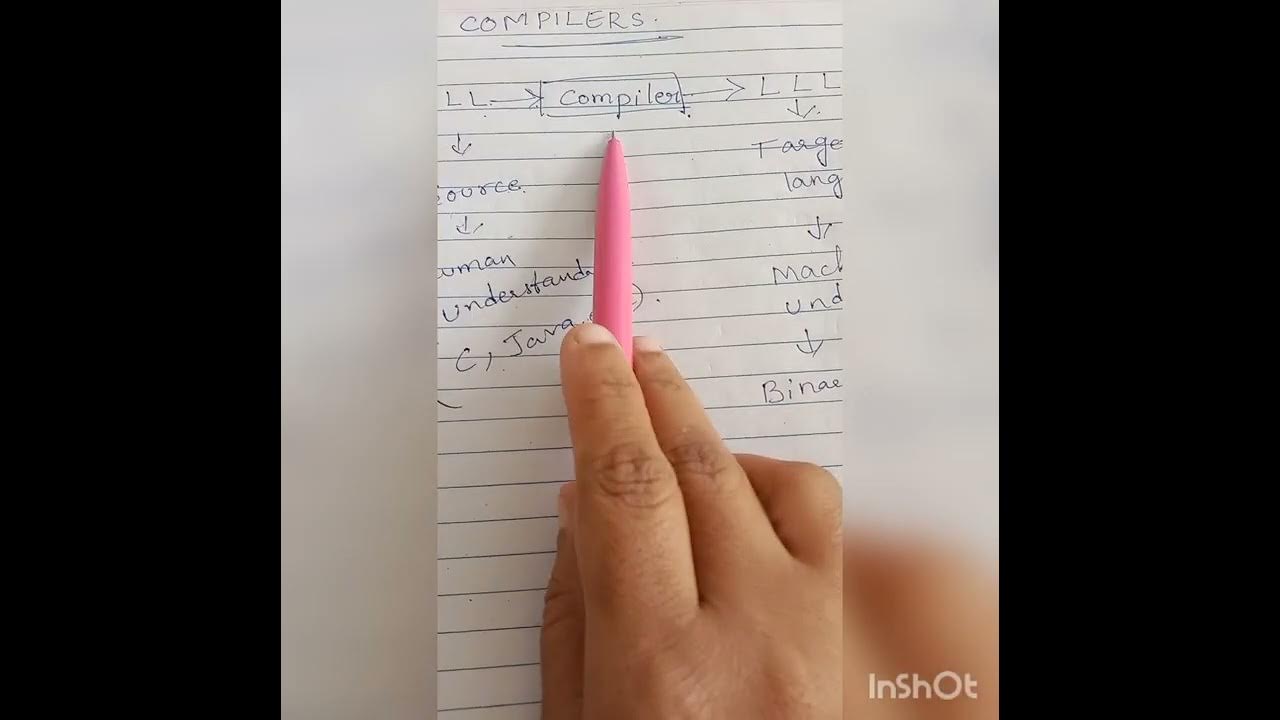 COMPILERS.
LL → Compiler → LLL
ource.
Targe
lang
uman
understand
Mach
und
C, Java,
Binae
InShOt